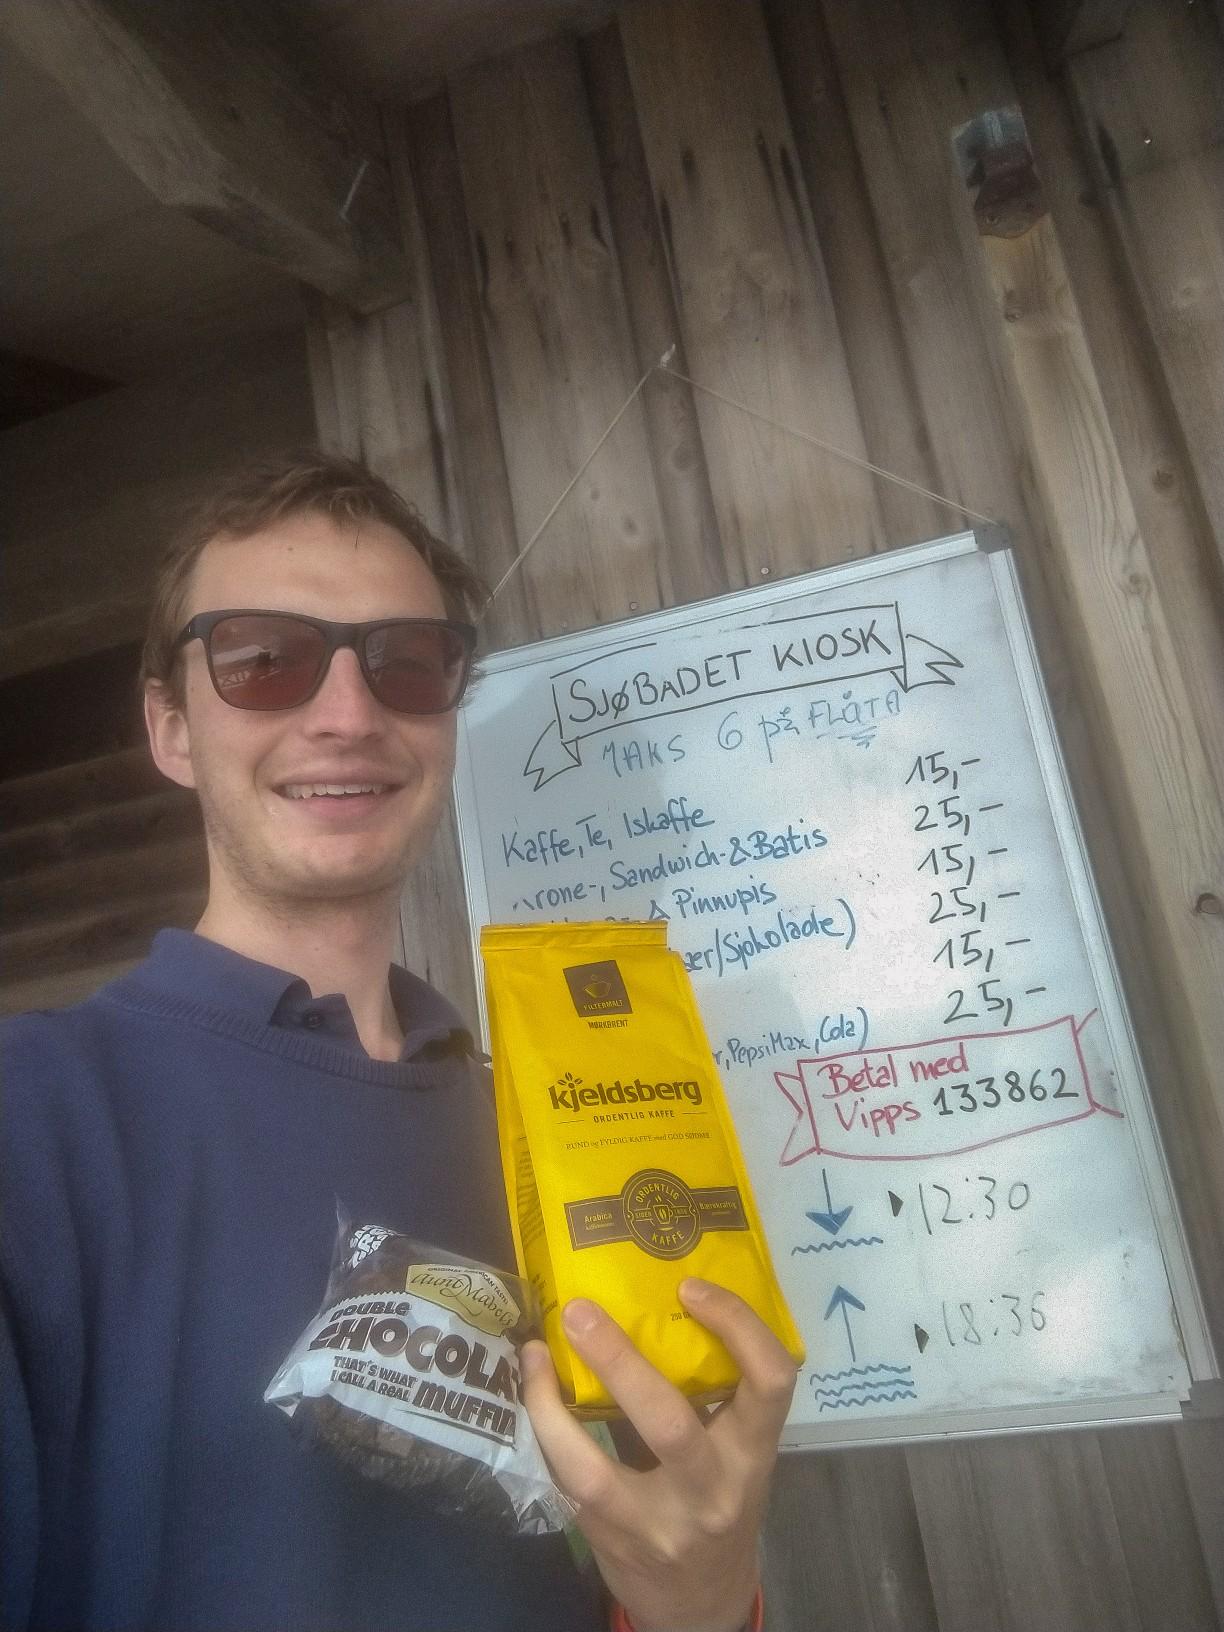 SJØBADET KIOSK
MAKS 6 på FLÅTA
Kaffe, Te, Iskaffe 15,-
Sandwich- & Batis 25,-
& Pinnupis 15,-
/Sjokolade) 25,-
15,-
PepsiMax, Cola) 25,-
Betal med
Vipps 133862
12:30
18:36
FILTERMALT
MØRKBRENT
kjeldsberg
ORDENTLIG KAFFE
RUND og FYLDIG KAFFE med GOD SØDME
ORDENTLIG
Arabica
Bærekraftig
KAFFE
ORIGINAL AMERICAN TASTE
Aunt Mabel's
DOUBLE
CHOCOLA
THAT'S WHAT
I CALL A REAL MUFFIN